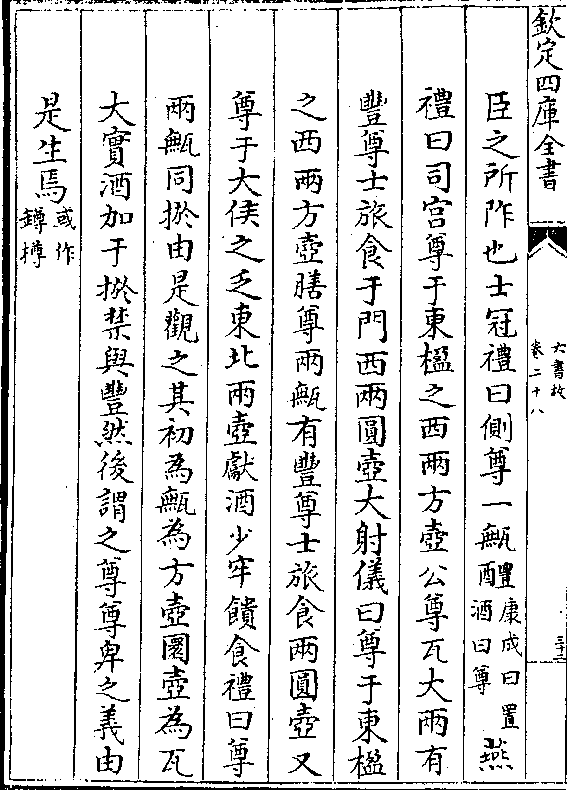 欽定四庫全書
六書故
卷二十八
臣之所阼也士冠禮曰側尊一甒醴康成曰置酒曰尊燕
禮曰司宫尊于東楹之西兩方壺公尊瓦大兩有
豐尊士旅食于門西兩圓壺大射儀曰尊于東楹
之西兩方壺膳尊兩甒有豐尊士旅食兩圓壺又
尊于大侯之乏東北兩壺獻酒少牢饋食禮曰尊
兩甒同棜由是觀之其初為甒為方壺圜壺為瓦
大實酒加于棜禁與豐然後謂之尊尊卑之義由
是生焉或作鐏樽